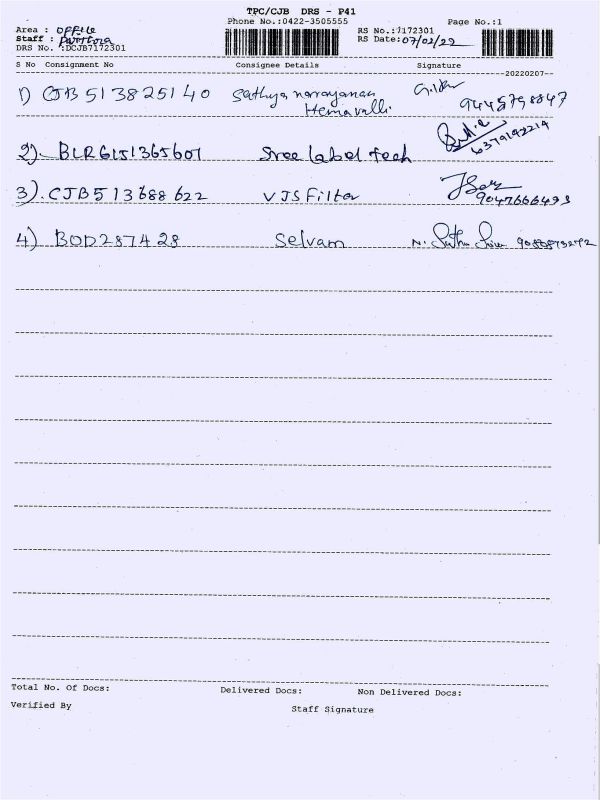 TPC/CJB DRS - P41
Phone No.:0422-3505555 Page No.:1
Area : OFFICE RS No.:7172301
Staff : RS Date:07/02/22
DRS No. :DCJB7172301
S No Consignment No Consignee Details Signature
20220207
1) CJB 513825140 Sathya narayanan
Hemavalli 9445798847
2). BLR6151365607 Sree label Tech 6379192214
3). CJB513688622 VJS Filter 9047666493
4) BOD287428 Selvam
Total No. Of Docs: Delivered Docs: Non Delivered Docs:
Verified By Staff Signature